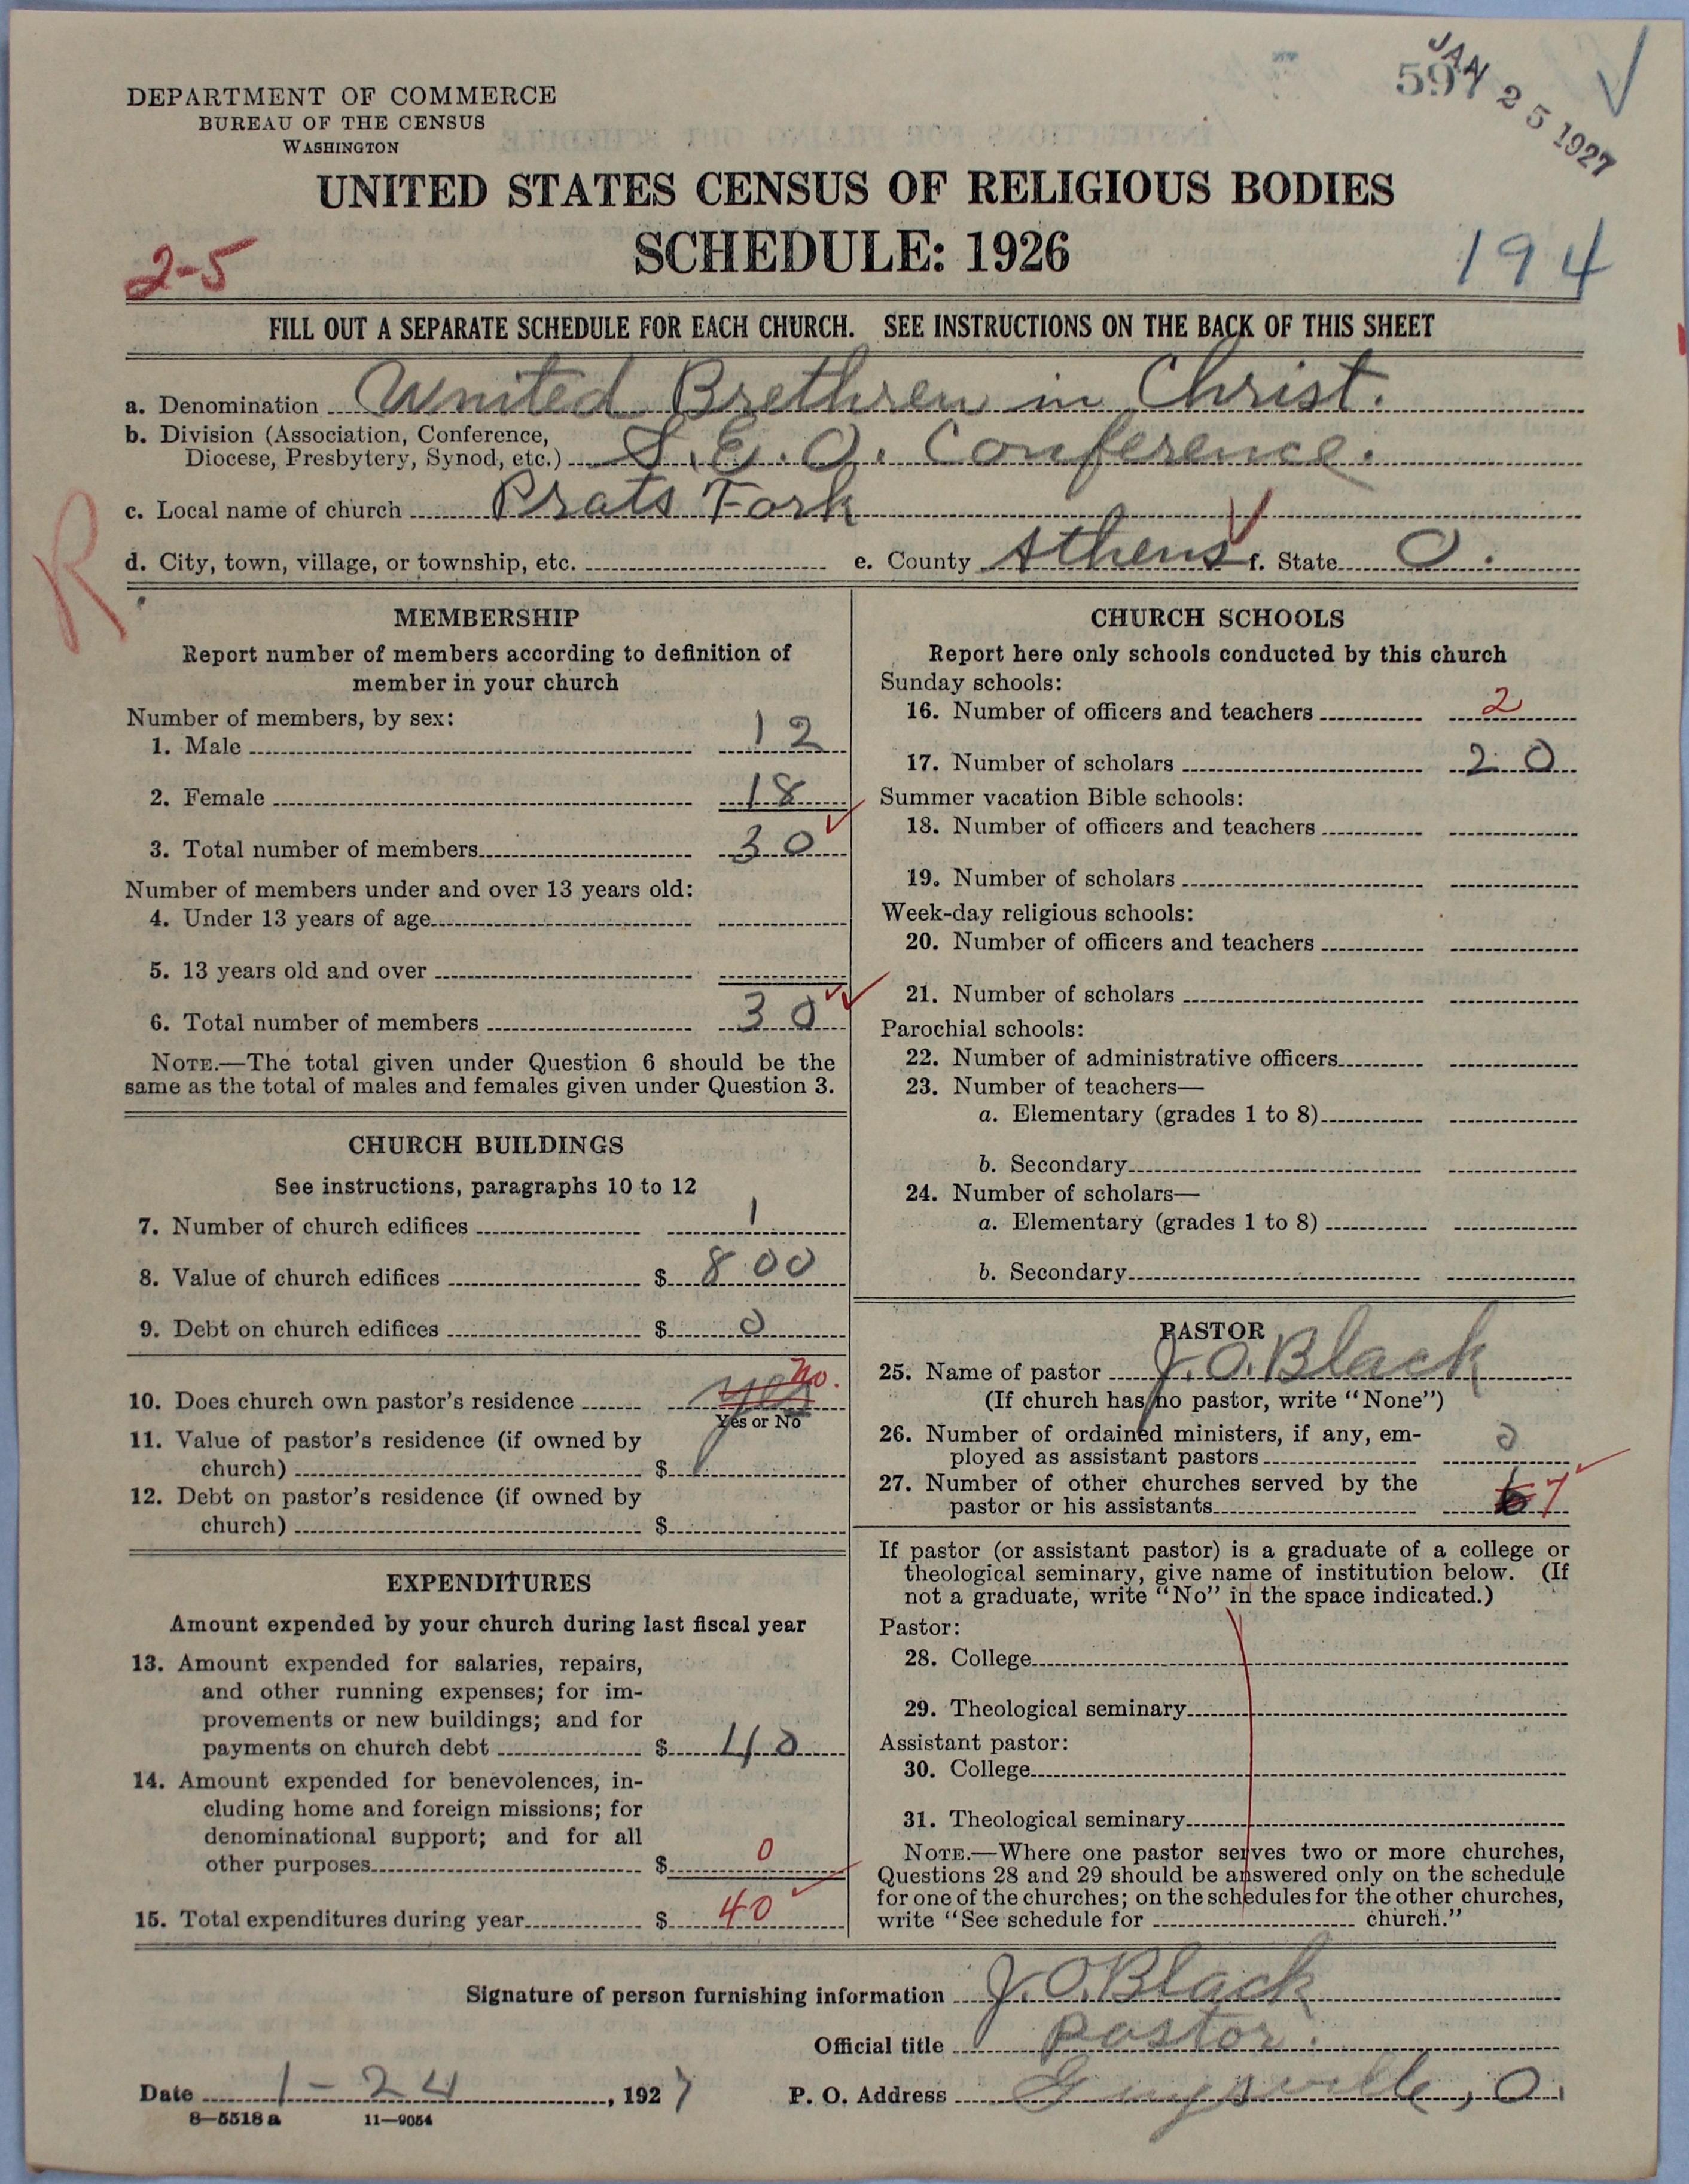 DEPARTMENT OF COMMERCE
BUREAU OF THE CENSUS
WASHINGTON
597
JAN 25 1927
UNITED STATES CENSUS OF RELIGIOUS BODIES
SCHEDULE: 1926
2-5
194
FILL OUT A SEPARATE SCHEDULE FOR EACH CHURCH. SEE INSTRUCTIONS ON THE BACK OF THIS SHEET
a. Denomination United Brethren in Christ.
b. Division (Association, Conference,
Diocese, Presbytery, Synod, etc.) S.E.O. Conference.
c. Local name of church Prats Fork
R
d. City, town, village, or township, etc. e. County Athens f. State O.
MEMBERSHIP
Report number of members according to definition of
member in your church
Number of members, by sex:
1. Male 12
2. Female 18
3. Total number of members 30
Number of members under and over 13 years old:
4. Under 13 years of age
5. 13 years old and over
6. Total number of members 30
NOTE.—The total given under Question 6 should be the
same as the total of males and females given under Question 3.
CHURCH BUILDINGS
See instructions, paragraphs 10 to 12
7. Number of church edifices 1
8. Value of church edifices $ 800
9. Debt on church edifices $ 0
10. Does church own pastor's residence yes no.
Yes or No
11. Value of pastor's residence (if owned by
church) $
12. Debt on pastor's residence (if owned by
church) $
EXPENDITURES
Amount expended by your church during last fiscal year
13. Amount expended for salaries, repairs,
and other running expenses; for im-
provements or new buildings; and for
payments on church debt $ 40
14. Amount expended for benevolences, in-
cluding home and foreign missions; for
denominational support; and for all
other purposes $ 0
15. Total expenditures during year $ 40
CHURCH SCHOOLS
Report here only schools conducted by this church
Sunday schools:
16. Number of officers and teachers 2
17. Number of scholars 20
Summer vacation Bible schools:
18. Number of officers and teachers
19. Number of scholars
Week-day religious schools:
20. Number of officers and teachers
21. Number of scholars
Parochial schools:
22. Number of administrative officers
23. Number of teachers—
a. Elementary (grades 1 to 8)
b. Secondary
24. Number of scholars—
a. Elementary (grades 1 to 8)
b. Secondary
PASTOR
25. Name of pastor J. O. Black
(If church has no pastor, write "None")
26. Number of ordained ministers, if any, em-
ployed as assistant pastors 0
27. Number of other churches served by the
pastor or his assistants 6 7
If pastor (or assistant pastor) is a graduate of a college or
theological seminary, give name of institution below. (If
not a graduate, write "No" in the space indicated.)
Pastor:
28. College
29. Theological seminary
Assistant pastor:
30. College
31. Theological seminary
NOTE.—Where one pastor serves two or more churches,
Questions 28 and 29 should be answered only on the schedule
for one of the churches; on the schedules for the other churches,
write "See schedule for church."
Signature of person furnishing information J. O. Black
Official title pastor.
Date 1-24, 1927 P. O. Address Guysville, O.
8—5518a 11—9054